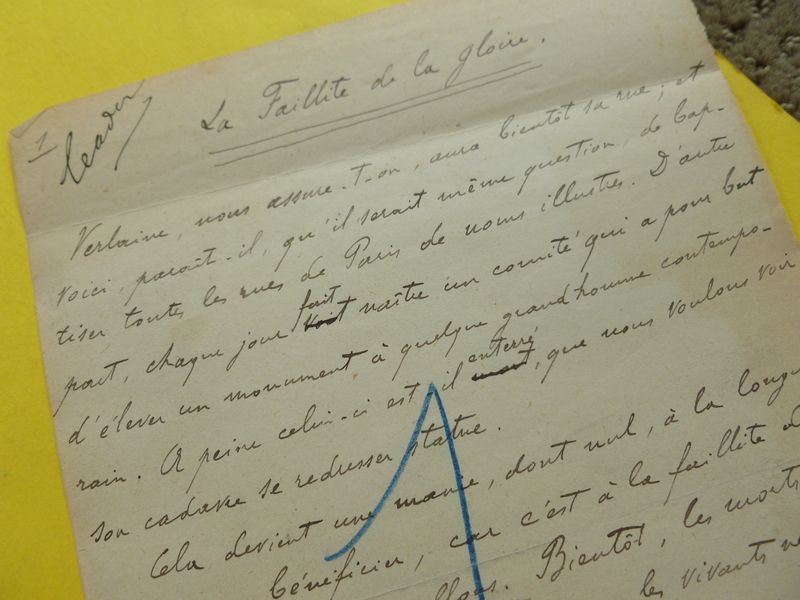 1
leader
La Faillite de la gloire.
Verlaine, nous assure-t-on, aura bientôt sa rue; et
voici, paraît-il, qu'il serait même question, de bap-
tiser toutes les rues de Paris de noms illustres. D'autre
part, chaque jour fait naître un comité qui a pour but
d'élever un monument à quelque grand homme contempo-
rain. A peine celui-ci est il enterré, que nous voulons voir
son cadavre se redresser statue.
Cela devient une manie, dont nul, à la longue
bénéficier, car c'est à la faillite d
Bientôt, les morts
les vivants